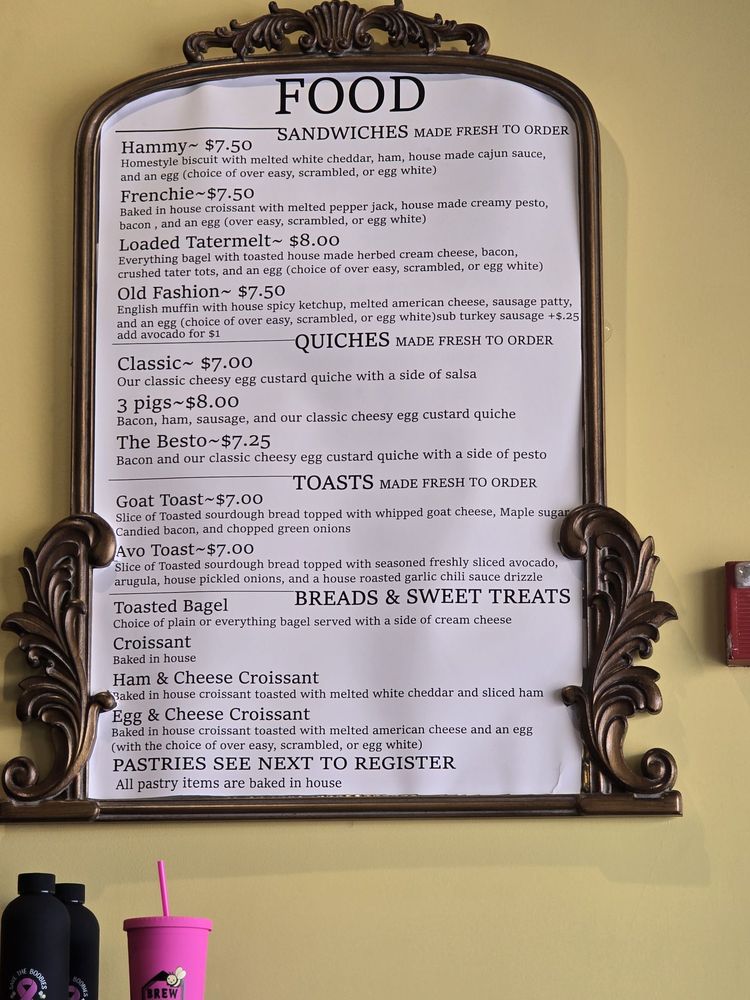 FOOD
SANDWICHES MADE FRESH TO ORDER
Hammy~ $7.50
Homestyle biscuit with melted white cheddar, ham, house made cajun sauce,
and an egg (choice of over easy, scrambled, or egg white)
Frenchie~$7.50
Baked in house croissant with melted pepper jack, house made creamy pesto,
bacon , and an egg (over easy, scrambled, or egg white)
Loaded Tatermelt~ $8.00
Everything bagel with toasted house made herbed cream cheese, bacon,
crushed tater tots, and an egg (choice of over easy, scrambled, or egg white)
Old Fashion~ $7.50
English muffin with house spicy ketchup, melted american cheese, sausage patty,
and an egg (choice of over easy, scrambled, or egg white)sub turkey sausage +$.25
add avocado for $1
QUICHES MADE FRESH TO ORDER
Classic~ $7.00
Our classic cheesy egg custard quiche with a side of salsa
3 pigs~$8.00
Bacon, ham, sausage, and our classic cheesy egg custard quiche
The Besto~$7.25
Bacon and our classic cheesy egg custard quiche with a side of pesto
TOASTS MADE FRESH TO ORDER
Goat Toast~$7.00
Slice of Toasted sourdough bread topped with whipped goat cheese, Maple sugar
Candied bacon, and chopped green onions
Avo Toast~$7.00
Slice of Toasted sourdough bread topped with seasoned freshly sliced avocado,
arugula, house pickled onions, and a house roasted garlic chili sauce drizzle
BREADS & SWEET TREATS
Toasted Bagel
Choice of plain or everything bagel served with a side of cream cheese
Croissant
Baked in house
Ham & Cheese Croissant
Baked in house croissant toasted with melted white cheddar and sliced ham
Egg & Cheese Croissant
Baked in house croissant toasted with melted american cheese and an egg
(with the choice of over easy, scrambled, or egg white)
PASTRIES SEE NEXT TO REGISTER
All pastry items are baked in house
SAVE THE BOOBIES
BOOBIES
BREW